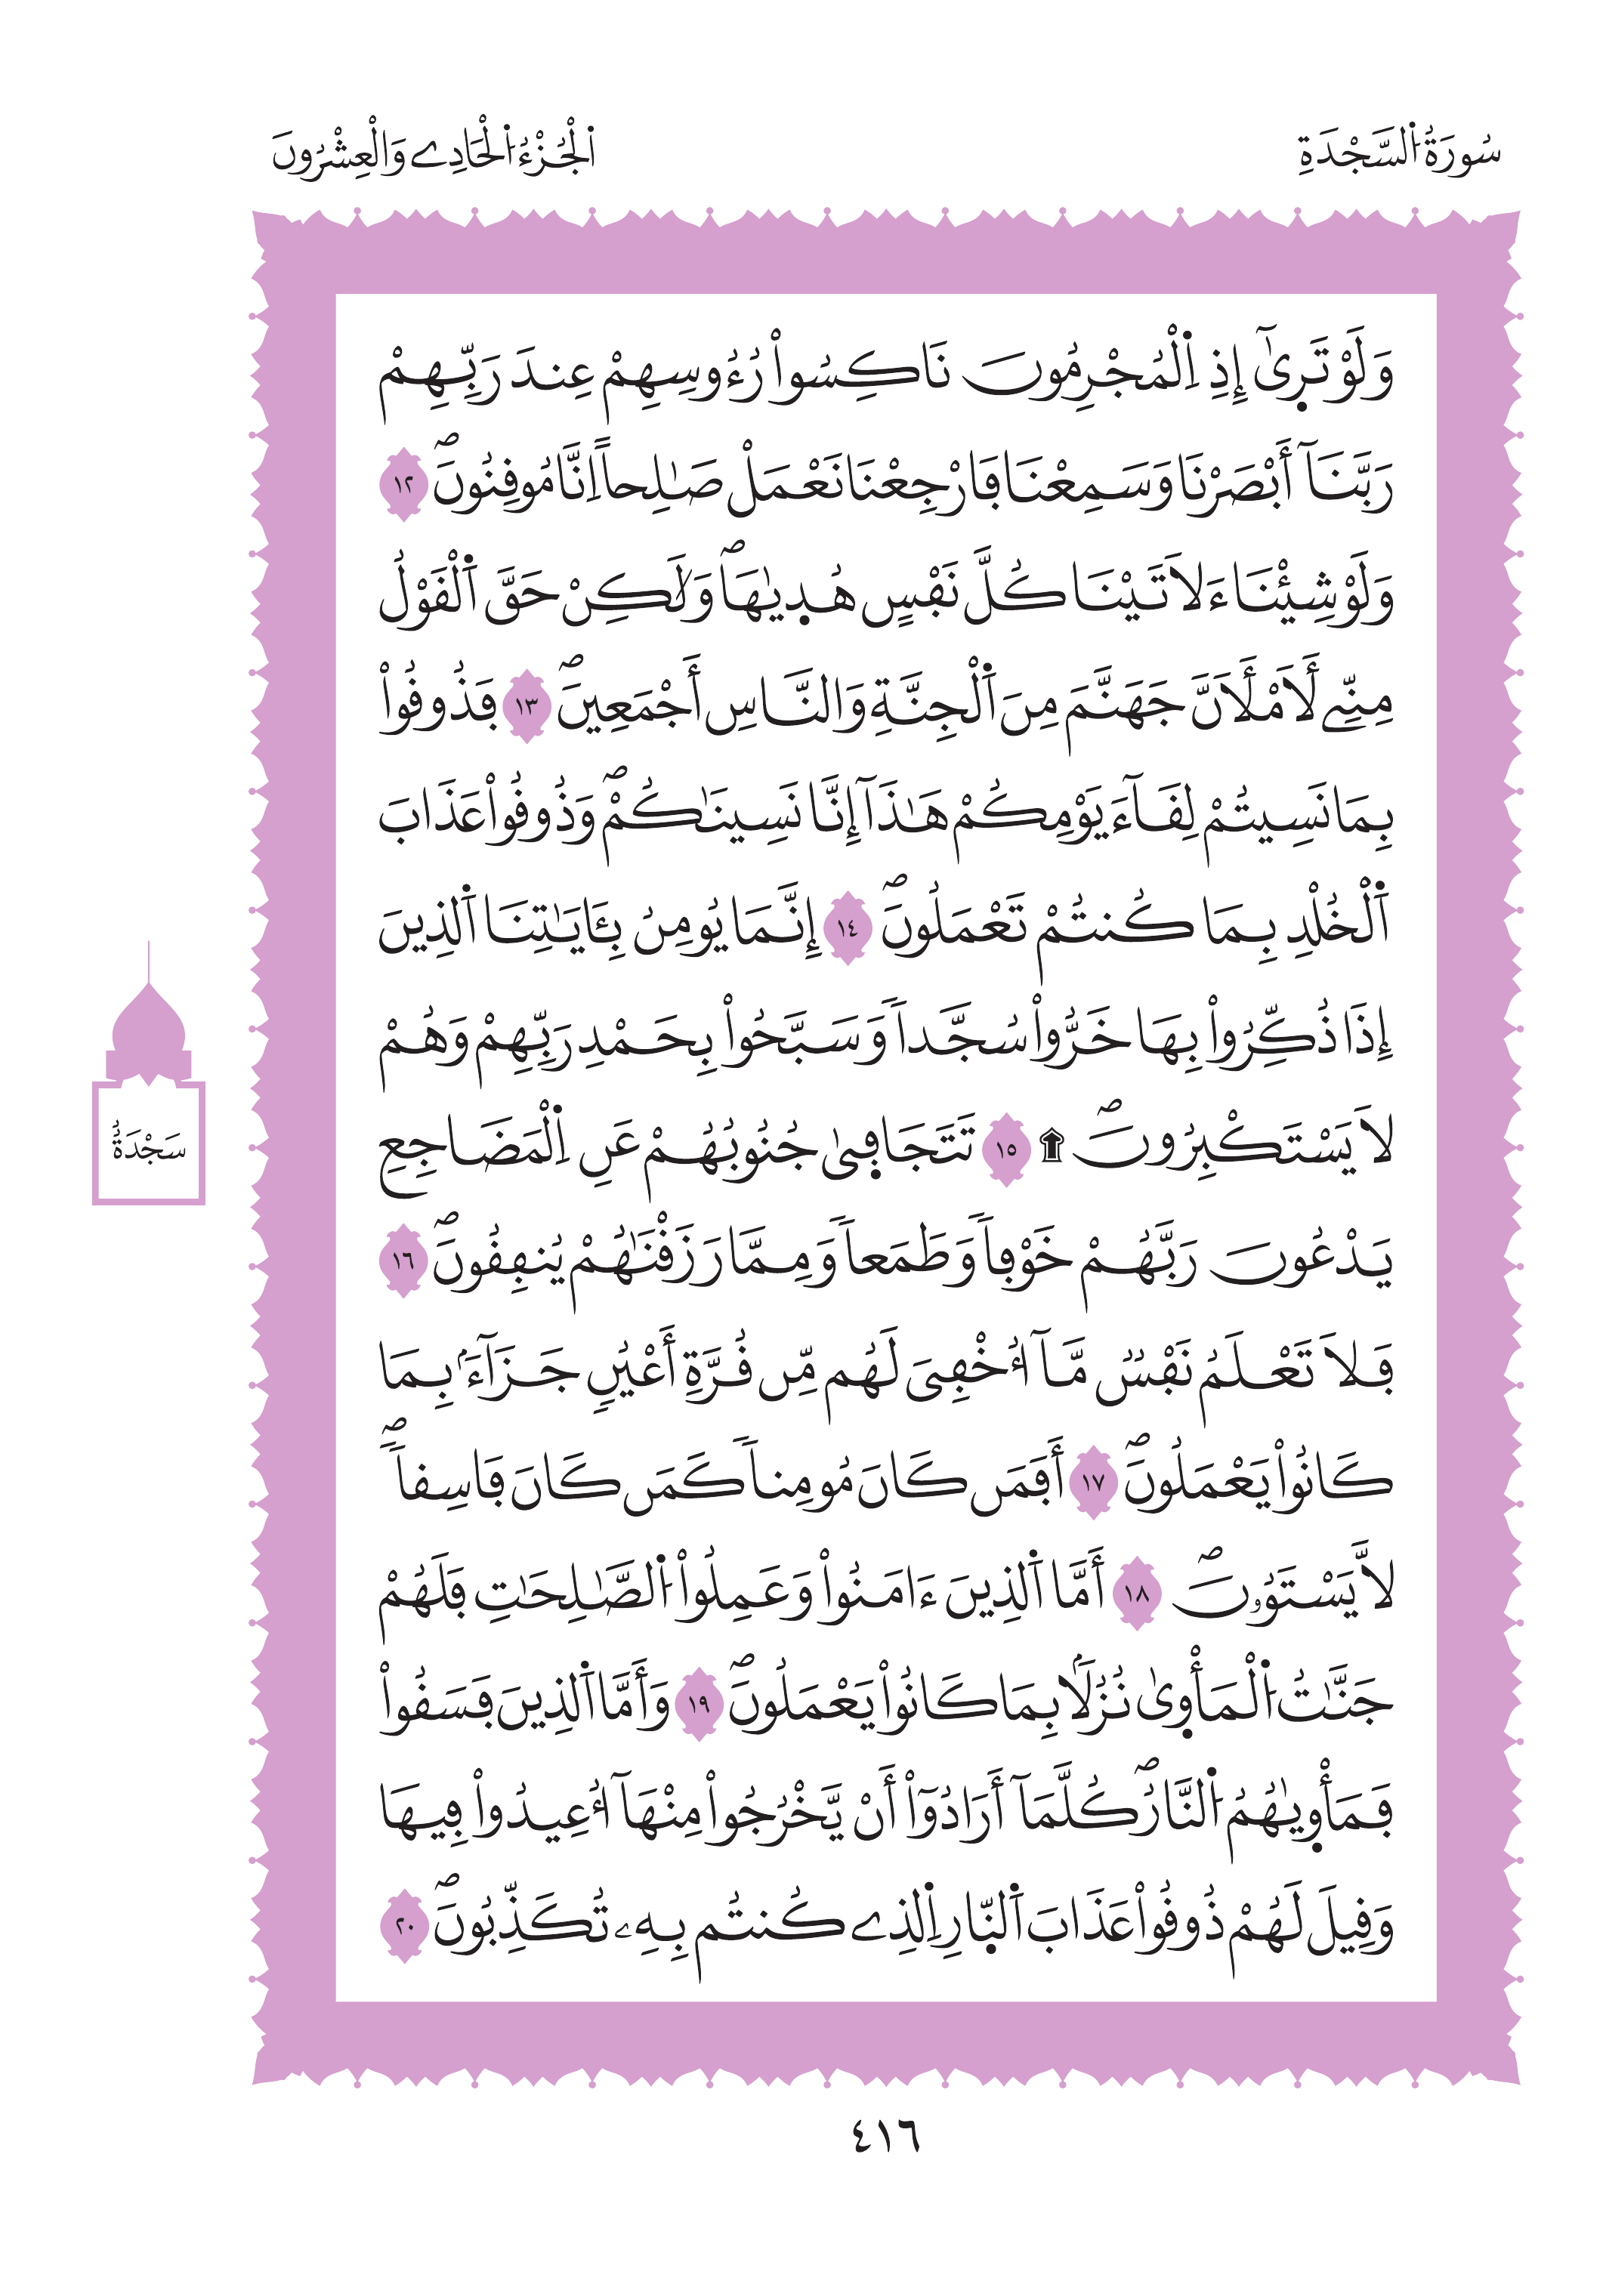 سُورَةُ اُ۬لسَّجْدَةِ
اَ۬لْجُزْءُ اُ۬لْحَادِے وَالْعِشْرُونَ
وَلَوْ تَر۪ىٰٓ إِذِ اِ۬لْمُجْرِمُونَ نَاكِسُواْ رُءُوسِهِمْ عِندَ رَبِّهِمْ
رَبَّنَآ أَبْصَرْنَا وَسَمِعْنَا فَارْجِعْنَا نَعْمَلْ صَٰلِحاً اِنَّا مُوقِنُونَۖ ١٢
وَلَوْ شِئْنَا ءَلَاتَيْنَا كُلَّ نَفْسٍ هُد۪يٰهَاۖ وَلَٰكِنْ حَقَّ اَ۬لْقَوْلُ
مِنِّے لَأَمْلَأَنَّ جَهَنَّمَ مِنَ اَ۬لْجِنَّةِ وَالنَّاسِ أَجْمَعِينَۖ ١٣ فَذُوقُواْ
بِمَا نَسِيتُمْ لِقَآءَ يَوْمِكُمْ هَٰذَآ إِنَّا نَسِينَٰكُمْۖ وَذُوقُواْ عَذَابَ
اَ۬لْخُلْدِ بِمَا كُنتُمْ تَعْمَلُونَۖ ١٤ إِنَّمَا يُومِنُ بِـَٔايَٰتِنَا اَ۬لذِينَ
إِذَا ذُكِّرُواْ بِهَا خَرُّواْ سُجَّداٗ وَسَبَّحُواْ بِحَمْدِ رَبِّهِمْ وَهُمْ
لَا يَسْتَكْبِرُونَۖ ۩ ١٥ تَتَجَاف۪ىٰ جُنُوبُهُمْ عَنِ اِ۬لْمَضَاجِعِ
يَدْعُونَ رَبَّهُمْ خَوْفاٗ وَطَمَعاٗ وَمِمَّا رَزَقْنَٰهُمْ يُنفِقُونَۖ ١٦
فَلَا تَعْلَمُ نَفْسٞ مَّآ أُخْفِىَ لَهُم مِّن قُرَّةِ أَعْيُنٖ جَزَآءَۢ بِمَا
كَانُواْ يَعْمَلُونَۖ ١٧ أَفَمَن كَانَ مُومِناٗ كَمَن كَانَ فَاسِقاٗۖ
لَّا يَسْتَوُۥنَۖ ١٨ أَمَّا اَ۬لذِينَ ءَامَنُواْ وَعَمِلُواْ اُ۬لصَّٰلِحَٰتِ فَلَهُمْ
جَنَّٰتُ اُ۬لْمَأْو۪ىٰ نُزُلاَۢ بِمَا كَانُواْ يَعْمَلُونَۖ ١٩ وَأَمَّا اَ۬لذِينَ فَسَقُواْ
فَمَأْو۪يٰهُمُ اُ۬لنَّارُۖ كُلَّمَآ أَرَادُوٓاْ أَنْ يَّخْرُجُواْ مِنْهَآ أُعِيدُواْ فِيهَا
وَقِيلَ لَهُمْ ذُوقُواْ عَذَابَ اَ۬لنّ۪ارِ اِ۬لذِے كُنتُم بِهِۦ تُكَذِّبُونَۖ ٢٠
سَجْدَةُ
٤١٦